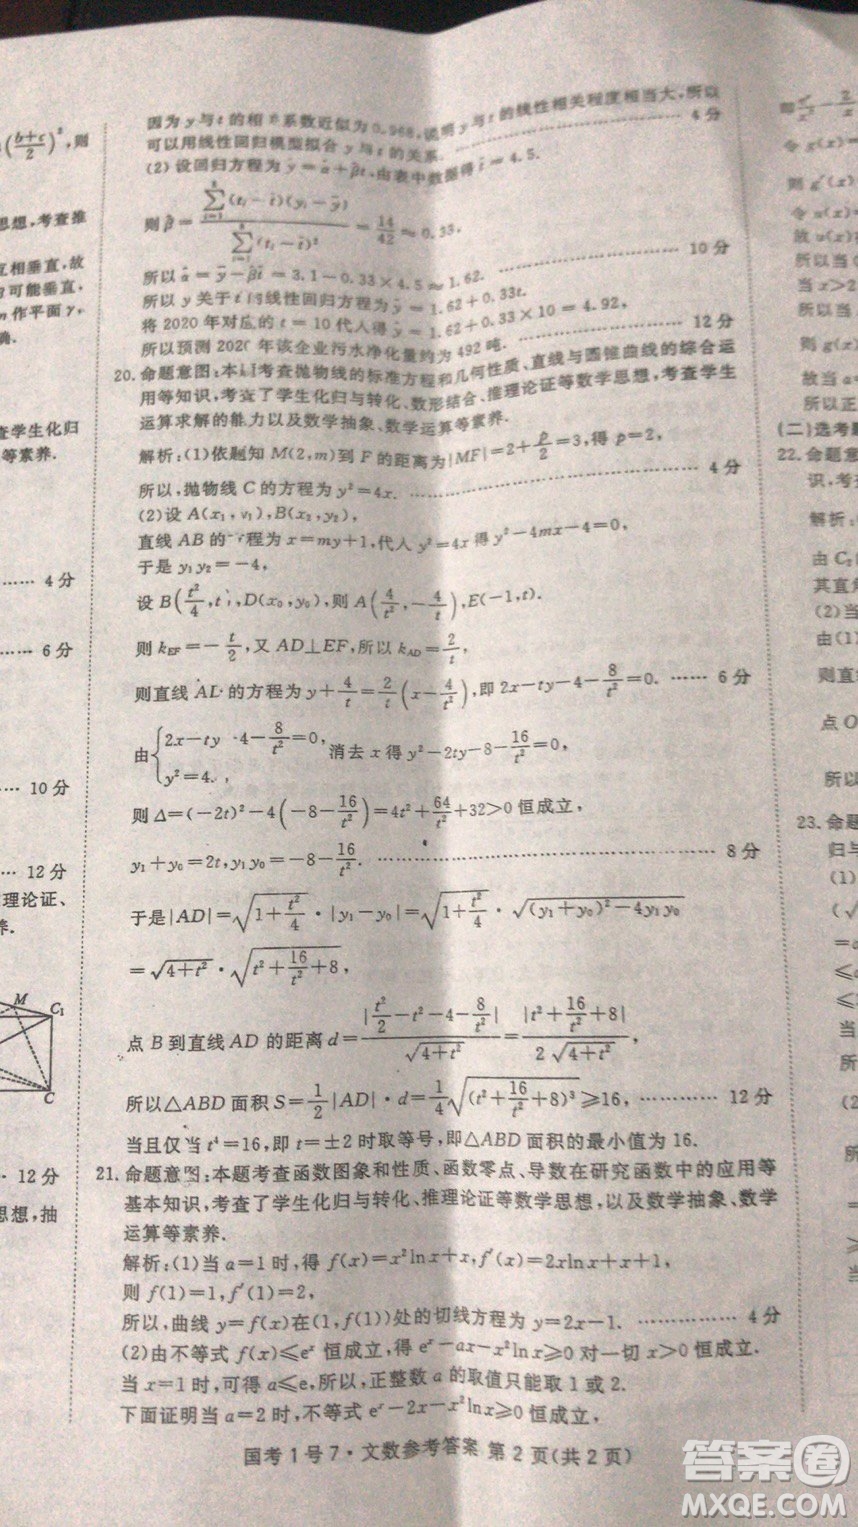 ((b+c)/2)²,则
思想,考查推
互相垂直,故
可能垂直,
作平面γ,
确.
查学生化归
等素养.
…… 4分
…… 6分
… 10分
… 12分
理论证、
养.
M
C₁
C
… 12分
思想,抽
因为y与t的相关系数近似为0.968,说明y与t的线性相关程度相当大,所以
可以用线性回归模型拟合y与t的关系. …… 4分
(2)设回归方程为ŷ=α̂+β̂t,由表中数据得t̄=4.5.
则β̂=∑(tᵢ-t̄)(yᵢ-ȳ)/∑(tᵢ-t̄)²=14/42≈0.33,
所以α̂=ȳ-β̂t̄=3.1-0.33×4.5≈1.62. …… 10分
所以y关于t的线性回归方程为ŷ=1.62+0.33t.
将2020年对应的t=10代人得ŷ=1.62+0.33×10=4.92,
所以预测2020年该企业污水净化量约为492吨. …… 12分
20. 命题意图:本题考查抛物线的标准方程和几何性质、直线与圆锥曲线的综合运
用等知识,考查了学生化归与转化、数形结合、推理论证等数学思想,考查学生
运算求解的能力以及数学抽象、数学运算等素养.
解析:(1)依题知M(2,m)到F的距离为|MF|=2+p/2=3,得p=2,
所以,抛物线C的方程为y²=4x. …… 4分
(2)设A(x₁,y₁),B(x₂,y₂),
直线AB的方程为x=my+1,代人y²=4x得y²-4my-4=0,
于是y₁y₂=-4,
设B(t²/4,t),D(x₀,y₀),则A(4/t²,-4/t),E(-1,t).
则k_EF=-t/2,又AD⊥EF,所以k_AD=2/t,
则直线AD的方程为y+4/t=2/t(x-4/t²),即2x-ty-4-8/t²=0. …… 6分
由{2x-ty-4-8/t²=0, y²=4x, 消去x得y²-2ty-8-16/t²=0,
则Δ=(-2t)²-4(-8-16/t²)=4t²+64/t²+32>0恒成立,
y₁+y₀=2t,y₁y₀=-8-16/t². …… 8分
于是|AD|=√(1+t²/4)·|y₁-y₀|=√(1+t²/4)·√((y₁+y₀)²-4y₁y₀)
=√(4+t²)·√(t²+16/t²+8),
点B到直线AD的距离d=|t²/2-t²-4-8/t²|/√(4+t²)=|t²+16/t²+8|/(2√(4+t²)),
所以△ABD面积S=1/2|AD|·d=1/4√((t²+16/t²+8)³)≥16, …… 12分
当且仅当t⁴=16,即t=±2时取等号,即△ABD面积的最小值为16.
21. 命题意图:本题考查函数图象和性质、函数零点、导数在研究函数中的应用等
基本知识,考查了学生化归与转化、推理论证等数学思想,以及数学抽象、数学
运算等素养.
解析:(1)当a=1时,得f(x)=x²lnx+x,f′(x)=2xlnx+x+1,
则f(1)=1,f′(1)=2,
所以,曲线y=f(x)在(1,f(1))处的切线方程为y=2x-1. …… 4分
(2)由不等式f(x)≤eˣ恒成立,得eˣ-ax-x²lnx≥0对一切x>0恒成立.
当x=1时,可得a≤e,所以,正整数a的取值只能取1或2.
下面证明当a=2时,不等式eˣ-2x-x²lnx≥0恒成立,
国考1号7·文数参考答案 第2页(共2页)
令g(x)
则g′(x)
令u(x)
故u(x)
所以当
当x>2
所以当
则g(x)
故当
所以正
(二)选考题
22. 命题意
识,考查
解析:
由C₂
其直角
(2)当
由(1)
则直线
点O
所以
23. 命题
归与
(1)
(√
=a
≤
≤
所
(2
当
所
答案圈
MXQE.COM